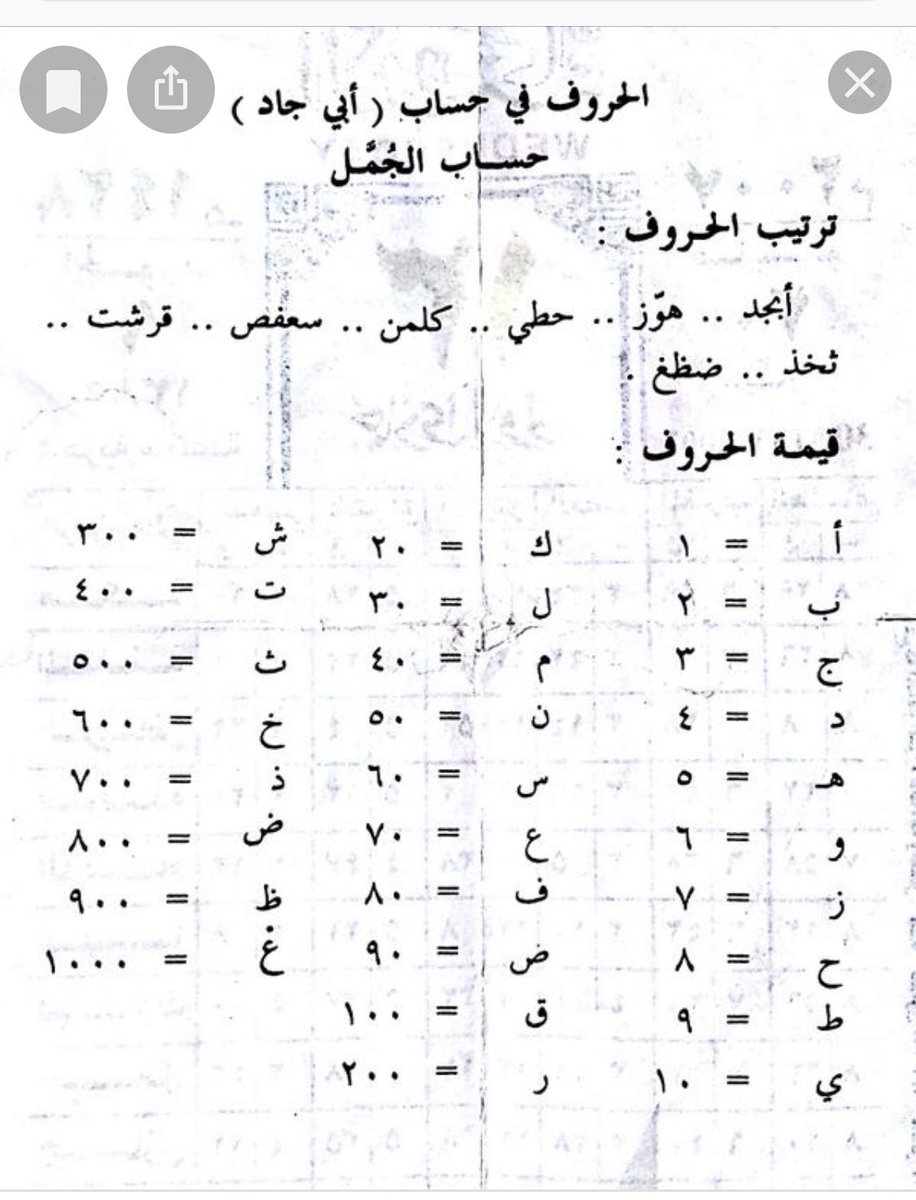 الحروف في حساب ( أبي جاد )
حساب الجُمَّل
ترتيب الحروف :
أبجد .. هوّز .. حطي .. كلمن .. سعفص .. قرشت ..
ثخذ .. ضظغ .
قيمة الحروف :
أ = ١ ك = ٢٠ ش = ٣٠٠
ب = ٢ ل = ٣٠ ت = ٤٠٠
ج = ٣ م = ٤٠ ث = ٥٠٠
د = ٤ ن = ٥٠ خ = ٦٠٠
هـ = ٥ س = ٦٠ ذ = ٧٠٠
و = ٦ ع = ٧٠ ض = ٨٠٠
ز = ٧ ف = ٨٠ ظ = ٩٠٠
ح = ٨ ض = ٩٠ غ = ١٠٠٠
ط = ٩ ق = ١٠٠
ي = ١٠ ر = ٢٠٠